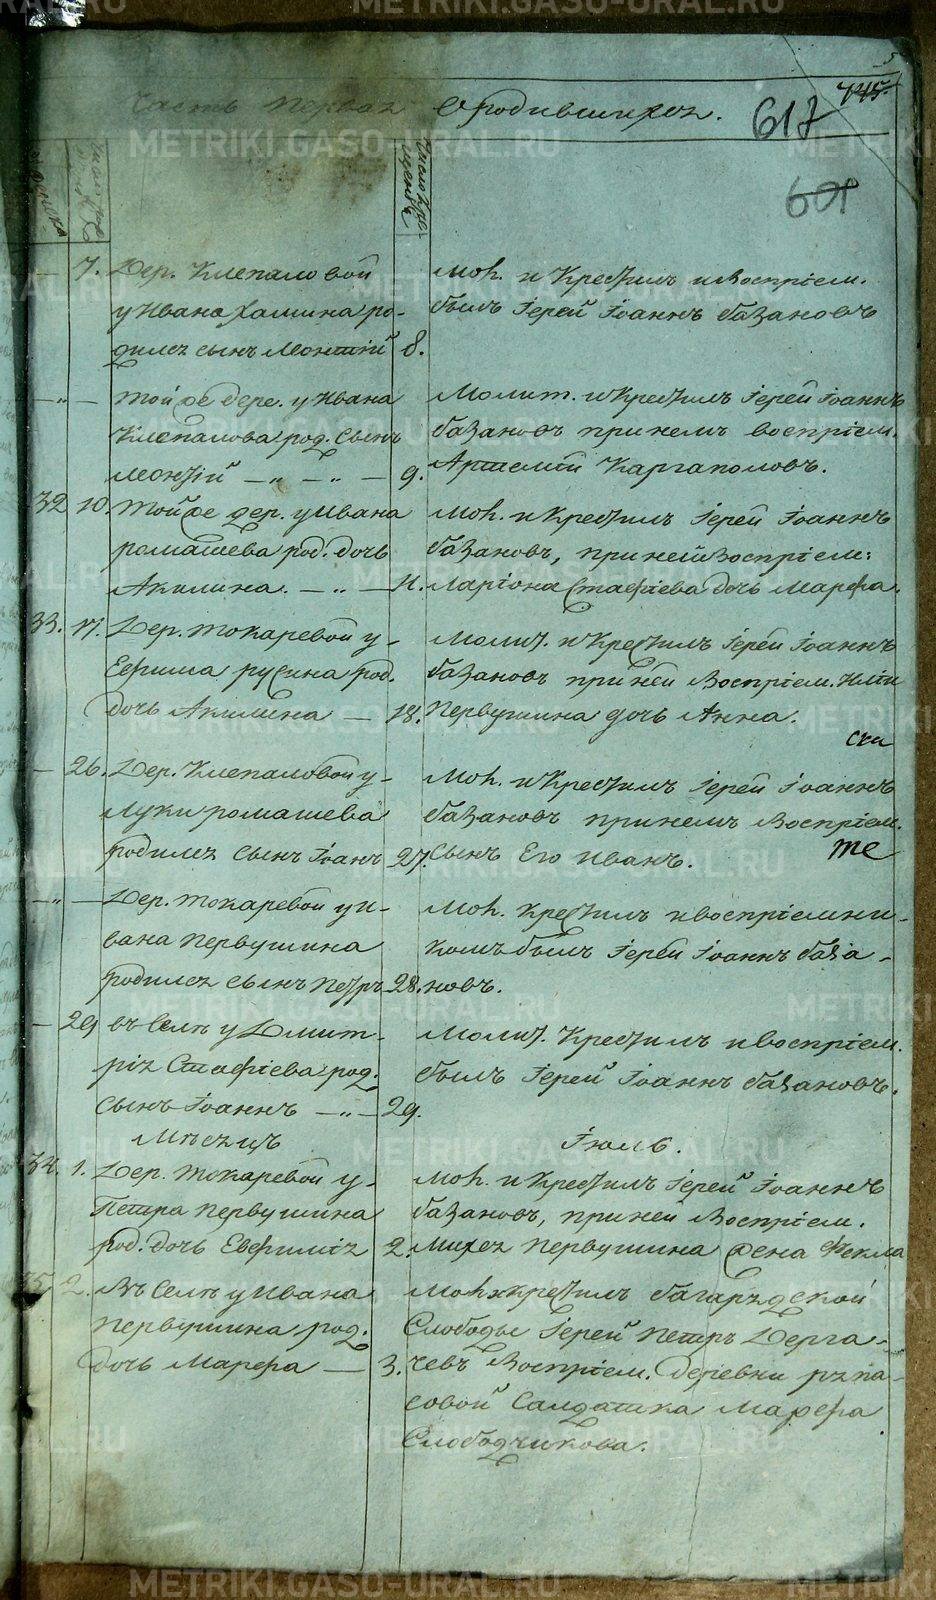 Часть первая О родившихся. 617 745.
601
Число кре-
щенія
7. Дер. Клепаловой
у Ивана Хамина ро-
дился сынъ Леонтій 8.
Мол. и Крестилъ и Воспріем.
былъ Іерей Іоаннъ Базановъ
— " — Той же дере. у Ивана
Клепалова род. сынъ
Леонтій — " — " — 9.
Молит. и Крестилъ Іерей Іоаннъ
Базановъ при немъ воспріем.
Артемій Каргаполовъ.
32 10. Той же дер. у Ивана
Ромашева род. дочь
Акилина. — " — 11.
Мол. и Крестилъ Іерей Іоаннъ
Базановъ, при ней Воспріем:
Ларіона Стафіева дочь Марфа.
33. 17. Дер. Токаревой у
Ефима Русина род.
дочь Акилина — 18.
Молит. и Крестилъ Іерей Іоаннъ
Базановъ при ней Воспріем. Иліи
Первушина дочь Анна.
ска
— 26. Дер. Клепаловой у
Луки Ромашева
родился сынъ Іоанъ 27.
Мол. и Крестилъ Іерей Іоаннъ
Базановъ при немъ Воспріем.
сынъ Его Иванъ. те
— " — Дер. Токаревой у И-
вана Первушина
родился сынъ Петръ 28.
Мол. Крестилъ и воспріемни-
комъ былъ Іерей Іоаннъ База-
новъ.
— 29 въ Селѣ у Дмит-
рія Стафіева род.
сынъ Іоаннъ — " — 29.
Молит. Крестилъ и воспріем.
былъ Іерей Іоаннъ Базановъ.
Мѣсяцъ Іюль.
34. 1. Дер. Токаревой у
Петра Первушина
род. дочь Евфимія 2.
Мол. и Крестилъ Іерей Іоаннъ
Базановъ, при ней Воспріем.
Михея Первушина жена Фекла
35 2. Въ Селѣ у Ивана
Первушина род.
дочь Марфа — 3.
Мол. и крестилъ Багаряцкой
Слободы Іерей Петръ Дерга-
чевъ Воспріем. деревни
совой Салдатка Марфа
Слободчикова.